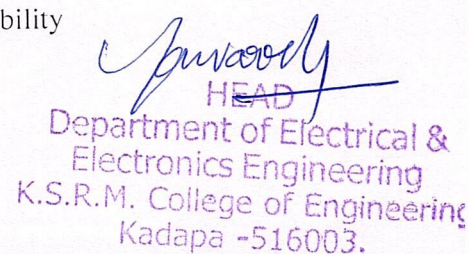 bility
HEAD
Department of Electrical &
Electronics Engineering
K.S.R.M. College of Engineering
Kadapa -516003.